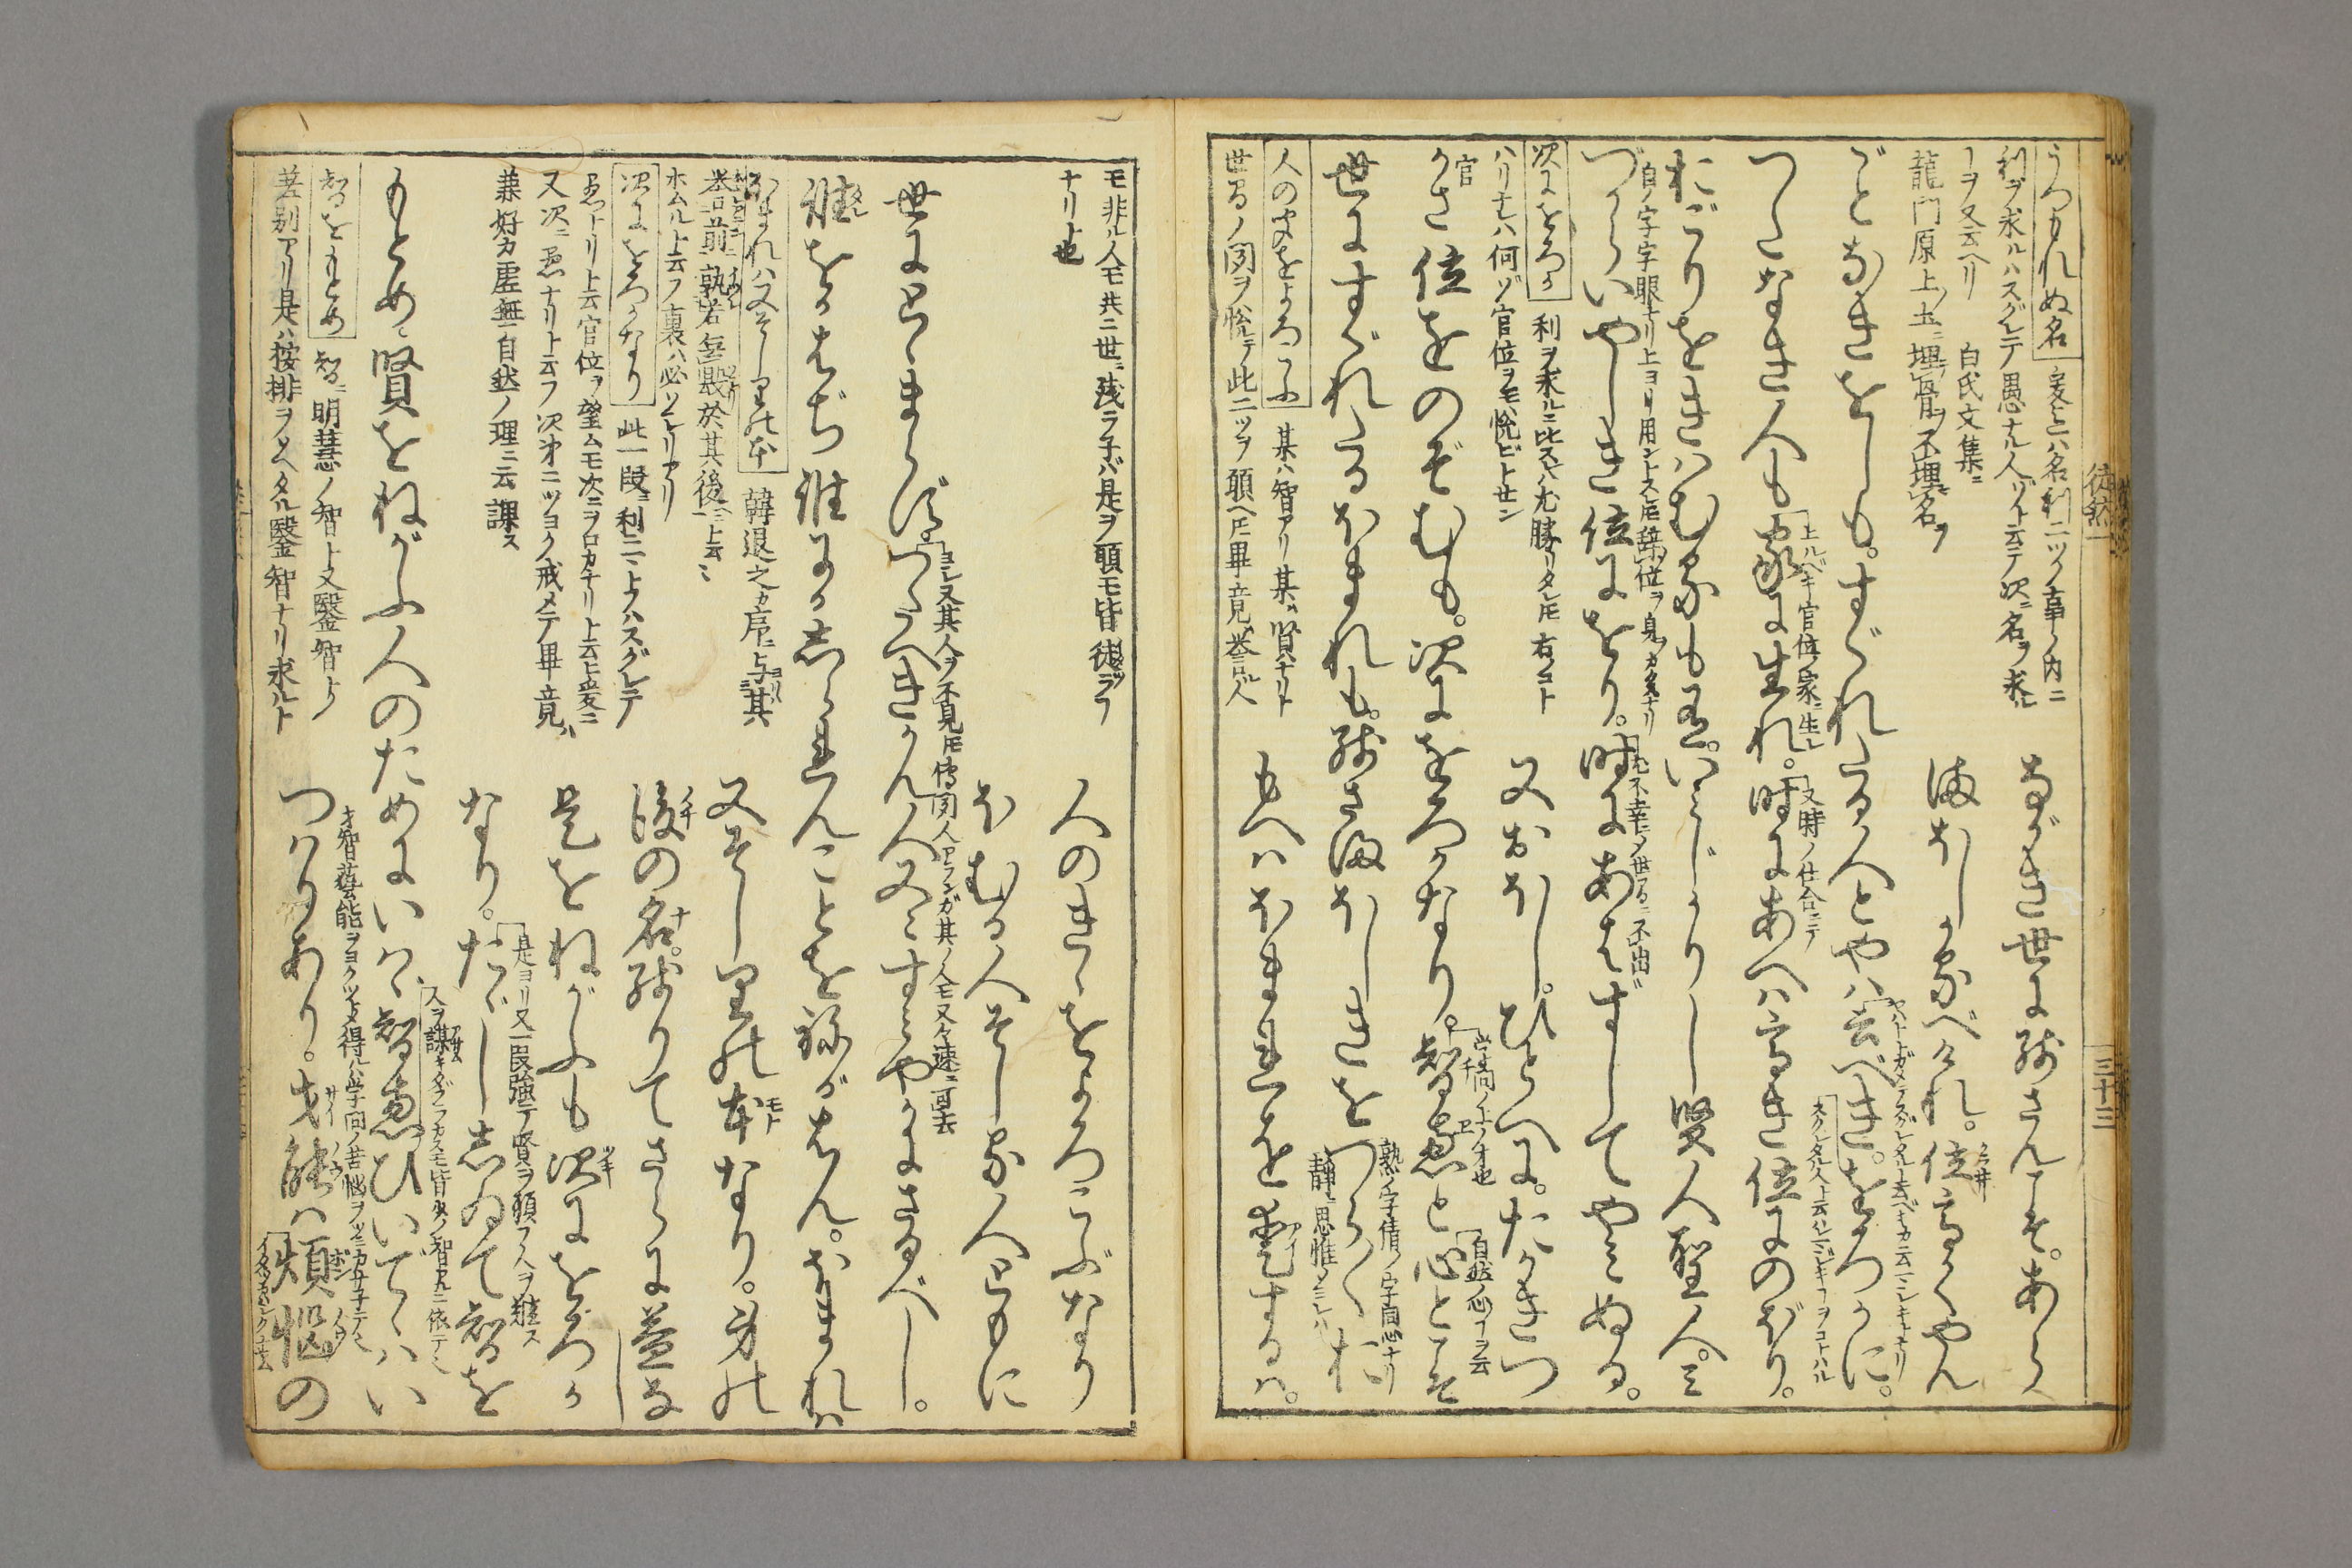 うづもれぬ名 爰ニハ名利二ツノ事ノ内ニ
利ヲ求ルハスグレテ愚ナル人ゾト云テ次ニ名ヲ求ル
ながき世に残さんこそ。あら
ヿヲ又云ヘリ 白氏文集ニ
龍門原上ノ土ニ埋骨ヲ不埋名ヲ
まほしかるべけれ。位高くやん
ごとなきをしも。すぐれたる人とやは云べき。をろかに。
上ルベキ官位ノ家ニ生レ
又時ノ仕合ニテ
つたなき人も家に生れ。時にあへは高き位にのぼり。
おごりをきはむるも有。いみじかりし賢人聖人ミ
づからいやしき位にをり。時にあはずしてやミぬる。
次にをろか 利ヲ求ルニ比スレバ尤勝リタレ𪜈右ノコト
ハリナレハ何ゾ官位ヲモ悦ビトセン
又おほし。ひとへに。たかきつ
官
かさ位をのぞむも。次にをろかなり。智恵と心とこそ
自然ノ心ヲ云
世にすぐれたるほまれも。残さまほしきをつら〱お
熟ノ字倩ノ字同心ナリ
静ニ思惟
人の聞をよろこふ 某ハ智アリ某ハ賢ナリト
世ノ聞ヲ悦テ此二ツヲ願ヘ𪜈畢竟誉ル人
もへはほまれを愛するは。
モ非ル人モ共ニ世ニ残ラ子バ是ヲ願モ皆徒ラ
ナリト也
人のきゝをよろこぶなり
ほむる人そしる人ともに
世にとゞまらず。つたへきかん人又〻すみやかにさるべし。
誰をかはぢ誰にかしられんことを祢がはん。ほまれは
ほまれハ又そしりの本 韓退之カ序ニ与其
誉前孰若無毀於其後ニト云ミ
ホムルト云フ裏ハ必ソシリアリ
又そしりの本なり。身の
次にをろかなり 此一段ニ利ニハスグレテ
愚ナリト云官位ヲ望ムモ次ニヲロカナリト云爰ニ
後の名。残りてさらに益なし
又次ニ愚ナリト云フ次第ニツヨク戒メテ畢竟ハ
是をねがふも次にをろか
兼好カ虚無自然ノ理ニ云課ス
なり。たゞし志ゐて智を
是ヨリ又一段強テ賢ヲ願フ人ヲ
もとめ賢をねがふ人のためにいはゝ智恵ひいでゝはい
智をもとめ 智ニ明慧ノ智ト又鑿智ト
差別アリ是ハ按排ヲタル鑿智ナリ求ルト
つはりあり。才能は煩悩の
徒然一
三十三